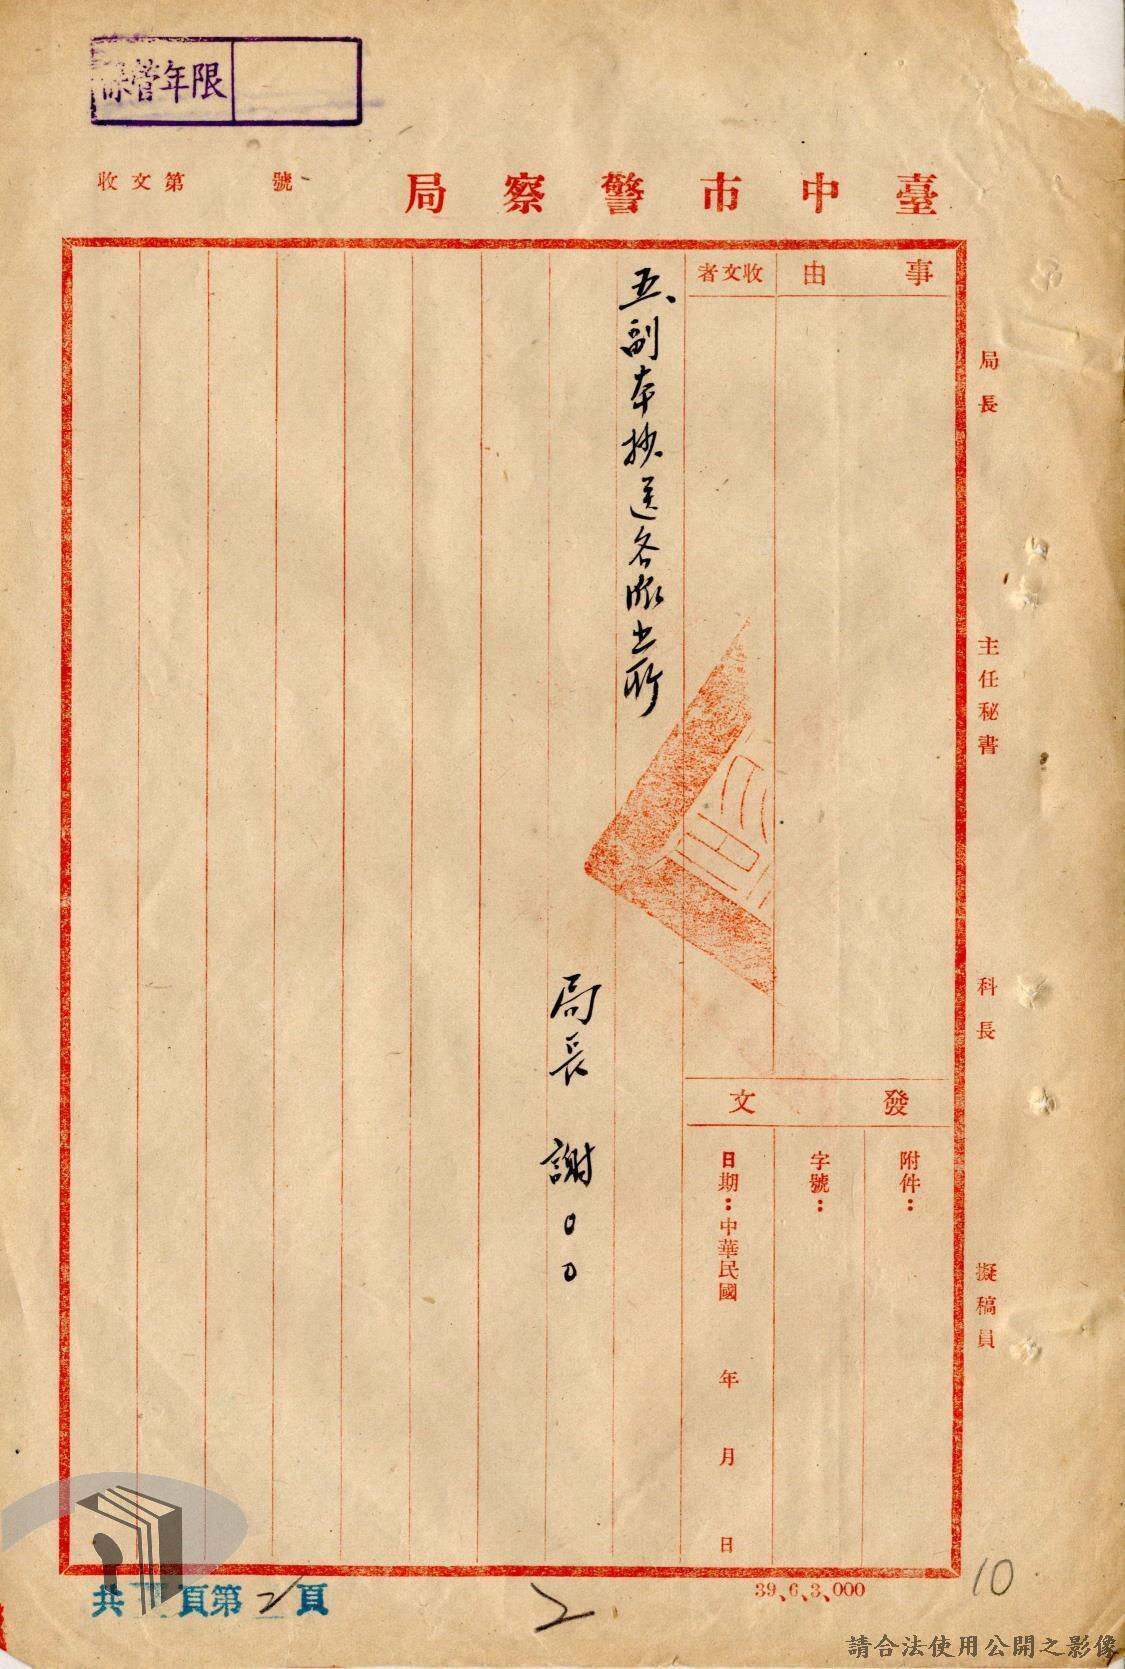 保管年限
臺中市警察局
收文第 號
事由
收文者
五、副本抄送各派出所
局長 謝○○
發文
附件：
字號：
日期：中華民國 年 月 日
局長
主任秘書
科長
擬稿員
共 頁第2頁
2
39、6、3,000
10
請合法使用公開之影像